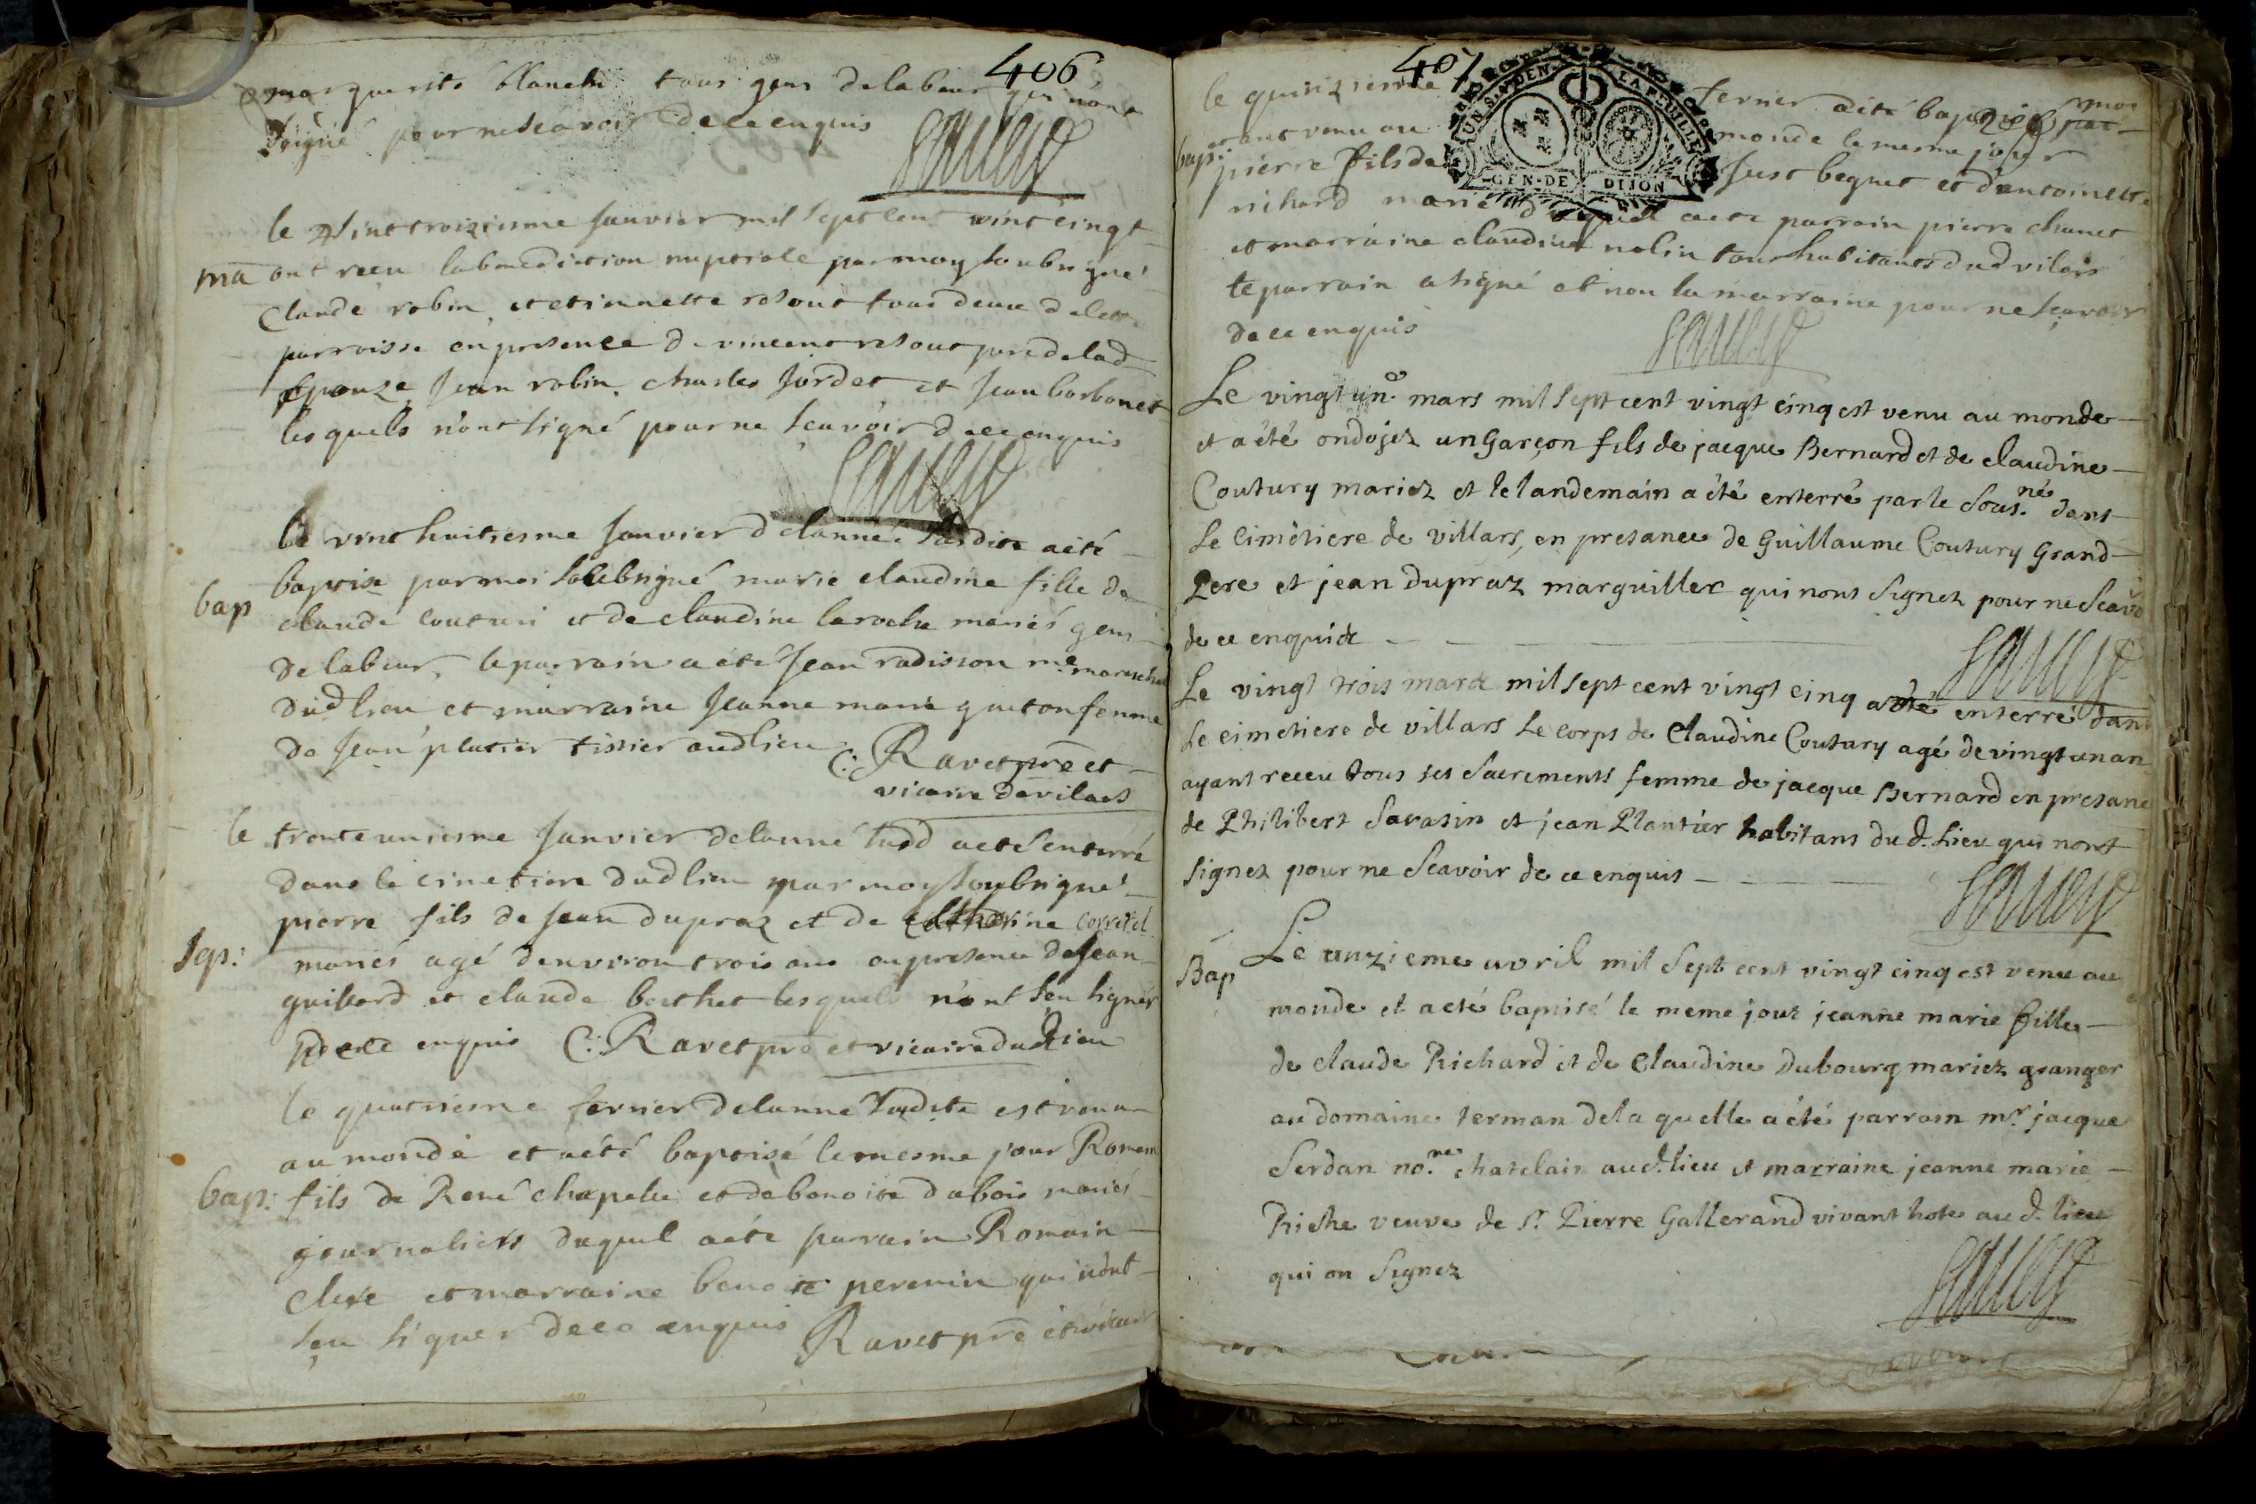 406
marguerite blanche tous gens de labeur qui nont
signé pour ne scavoir de ce enquis
le vint troizieme janvier mil sept cent vint cinqt
ma ont reçu la benediction nuptiale par moy soubsigné
Claude robin, et etiennette
parroisse en presence de vincent pere de lad
epouze jean robin, charles jordet et jean barbonet
lesquels n'ont signé pour ne sçavoir de ce enquis
le vint huitiesme janvier de lannée susdite a eté
bap baptise par moi soubsigné marie claudine fille de
claude couturi et de claudine laroche mariés gens
de labeur, le parrain a eté jean radisson me mareschal
dud lieu et marraine jeanne marie guiton femme
de jean platier tissier aud lieu
C: Ravet pre et
vicaire de vilars
le trente uniesme janvier de lanné susd a eté enterré
dans le cimetiere dud lieu par moy soubsigné
pierre fils de jean dupraz et de catherine
sep: mariés agé denviron trois ans en presence de jean
guillard et claude berthet lesquels n'ont sçu signer
de ce enquis C: Ravet pre et vicaire dud lieu
le quatriesme fevrier de lanne susdite est venu
au monde et a eté baptisé le mesme jour Romain
bap: fils de René chapelu et de benoite dubois mariés
journaliers duquel a eté parrain Romain
et marraine benoite perenin qui n'ont
sçu signer de ce enquis Ravet pre et vicaire
407
UN S. 4 DEN. LA FEUILLE
GEN. DE DIJON
le quinzieme fevrier a eté baptisé par moi
etant venu au monde le mesme jour
bap: pierre fils de just beguet et d'antoinette
richard marié duquel a eté parrain pierre chanet
et marraine claudine nolin tous habitants dud vilars
le parrain a signé et non la marraine pour ne sçavoir
de ce enquis
Le vingt un.e mars mil sept cent vingt cinq est venu au monde
et a été ondojez un Garçon fils de jacque Bernard et de claudine
Coutury mariez et le landemain a été enterré par le Sous.né dans
Le Cimètiere de villars, en presance de Guillaume Coutury Grand
Pere et jean Dupraz marguiller qui nont Signez pour ne Scavoir
de ce enquict
Le vingt trois mard mil sept cent vingt cinq a été enterré dans
Le cimetiere de villars Le corps de Claudine Coutury agé de vingt un an
ayant receu tous ses Sacrements femme de jacque Bernard en presance
de Philibert Savasin et jean Plantier habitans du d. Lieu qui nont
signez pour ne Scavoir de ce enquis
Bap Le unzieme avril mil Sept cent vingt cinq est venu au
monde et a eté baptisé le meme jour jeanne marie fille
de claude Richard et de Claudine Dubourg mariez granger
au domaine terman de la quelle a été parrain mr. jacque
Serdan no.re chatelain au d. lieu et marraine jeanne marie
Riche veuve de Sr. Pierre Gallerand vivant hote au d. lieu
qui on Signez